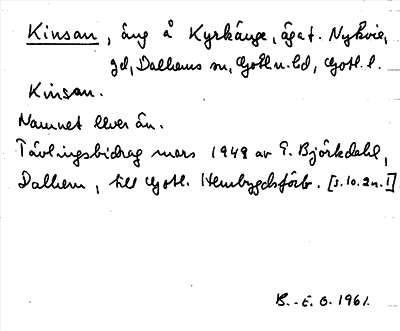 Kinsan, äng å Kyrkänge, ägat. Nykvie,
gd, Dalhems sn, Gotl. n. hd, Gotl. l.
Kinsan.
Namnet lever än.
Tävlingsbidrag mars 1949 av E. Björkdahl,
Dalhem, till Gotl. Hembygdsförb. [s. 10. 2 n. I]
B. - E. O. 1961.